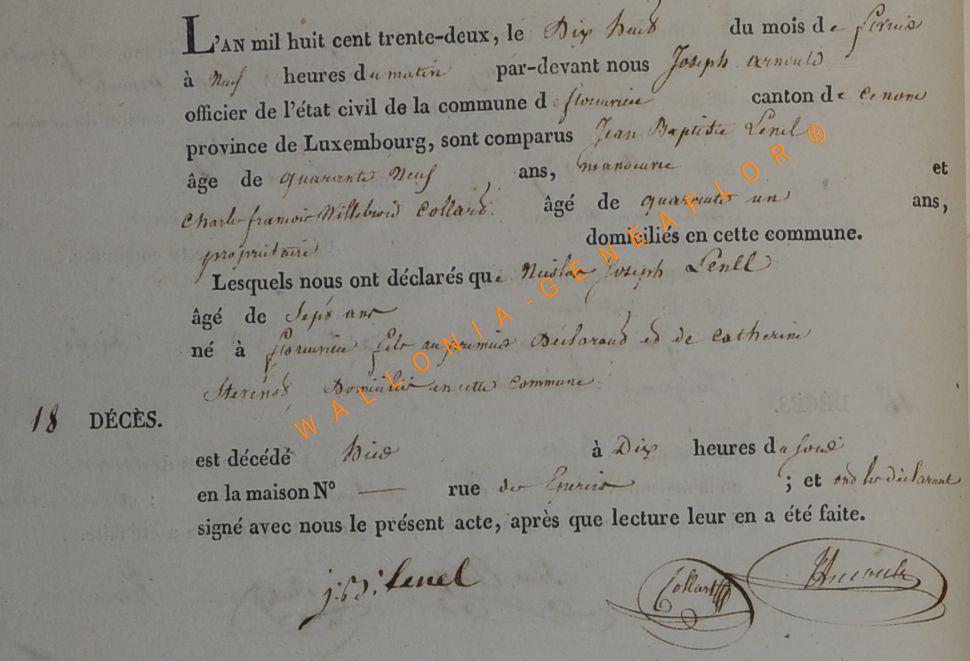 L'AN mil huit cent trente-deux, le Dix huit du mois de fevrie
à Neuf heures du matin par-devant nous Joseph arnould
officier de l'état civil de la commune d florenville canton de
province de Luxembourg, sont comparus Jean Baptiste Lenel
âge de quarante Neuf ans, manoeuvre et
Charle francois Willebrord Collard. âgé de quarante un ans,
propriétaire domiciliés en cette commune.
Lesquels nous ont déclarés que Nicolas Joseph Lenel
âgé de Sept ans
né à florenville fils au premier Déclarant et de Catherine
Domiciliés en cette Commune.
18 DÉCÈS.
est décédé hier à Dix heures du soir
en la maison N° — rue des ; et ont les déclarant
signé avec nous le présent acte, après que lecture leur en a été faite.
j. B. Lenel Collart JArnould
WALLONIA-GENEAFLOR®